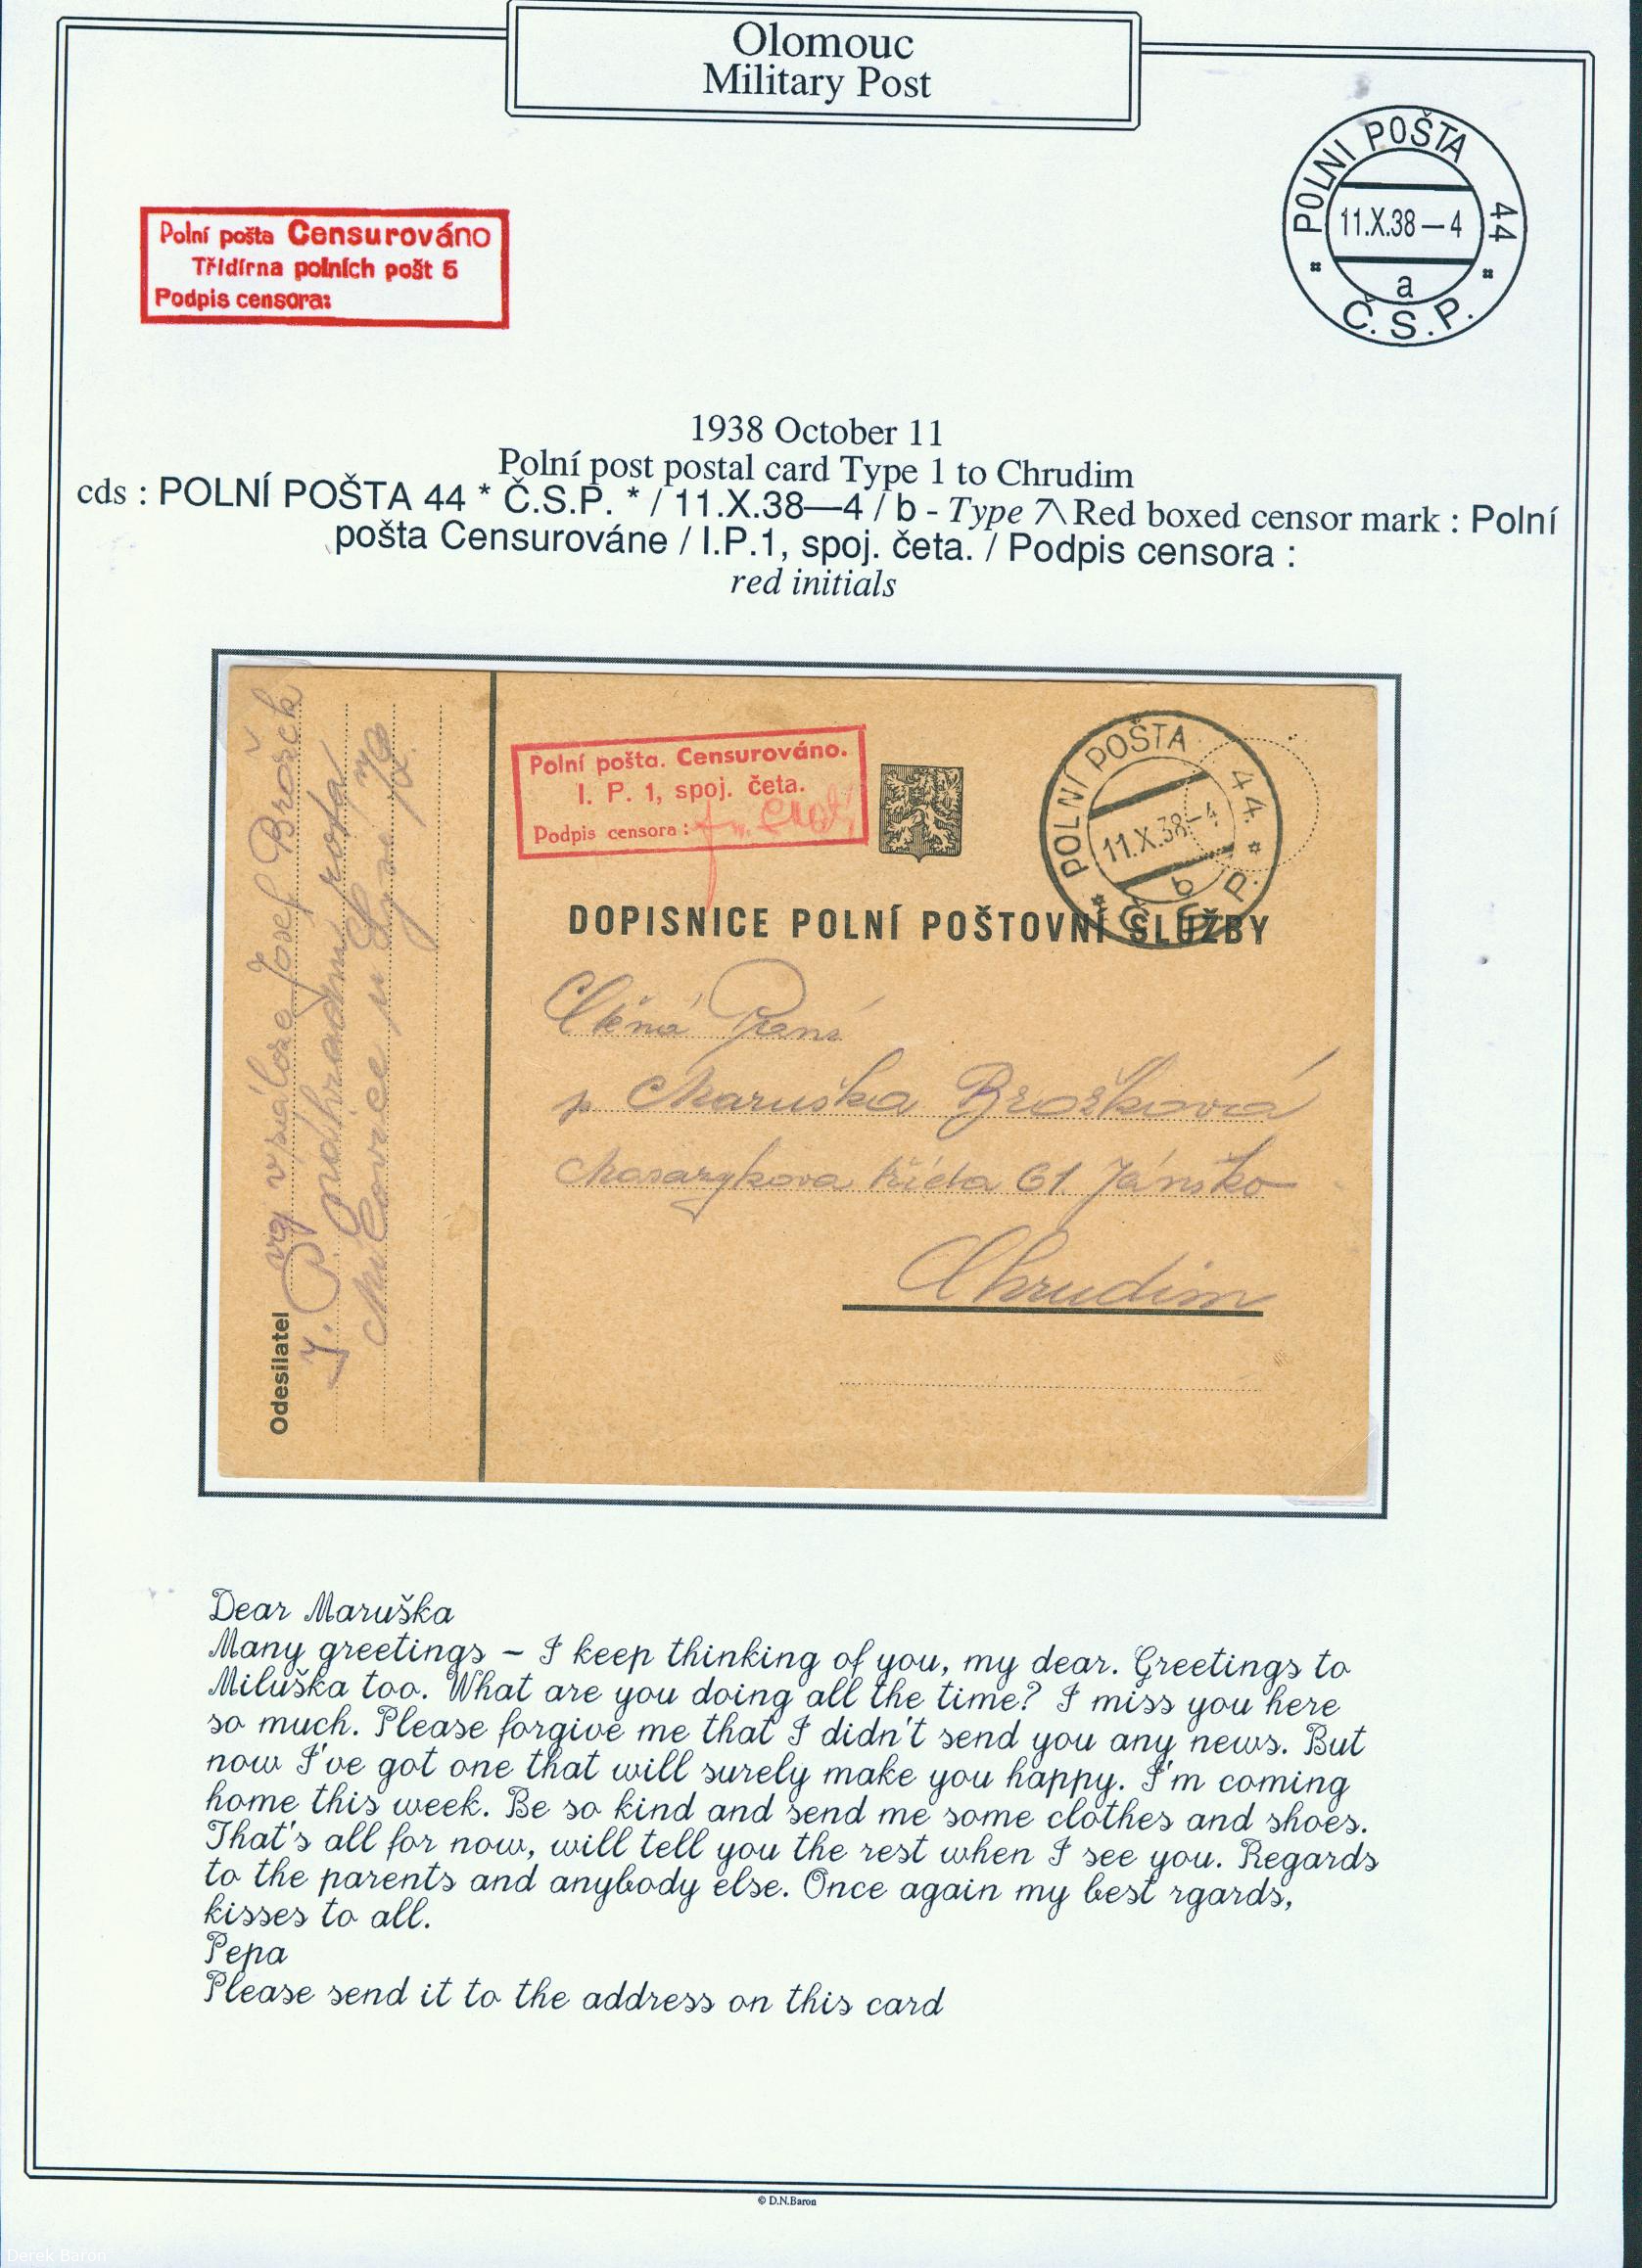 Olomouc
Military Post
Polní pošta Censurováno
Třídírna polních pošt 5
Podpis censora:
POLNI POŠTA 44
11.X.38—4
a
Č.S.P.
1938 October 11
Polní post postal card Type 1 to Chrudim
cds : POLNÍ POŠTA 44 * Č.S.P. * / 11.X.38—4 / b - Type 7\ Red boxed censor mark : Polní
pošta Censurováne / I.P.1, spoj. četa. / Podpis censora :
red initials
Polní pošta. Censurováno.
I. P. 1, spoj. četa.
Podpis censora :
POLNÍ POŠTA 44.
11.X.38-4
b
Č. S. P.
DOPISNICE POLNÍ POŠTOVNÍ SLUŽBY
Odesilatel
voj v záloze Josef Brožek
rota
Milovice n
Maruška Brožková
Masarykova třída 61
Chrudim
Dear Maruška
Many greetings – I keep thinking of you, my dear. Greetings to
Miluška too. What are you doing all the time? I miss you here
so much. Please forgive me that I didn't send you any news. But
now I've got one that will surely make you happy. I'm coming
home this week. Be so kind and send me some clothes and shoes.
That's all for now, will tell you the rest when I see you. Regards
to the parents and anybody else. Once again my best rgards,
kisses to all.
Pepa
Please send it to the address on this card
© D.N.Baron
Derek Baron